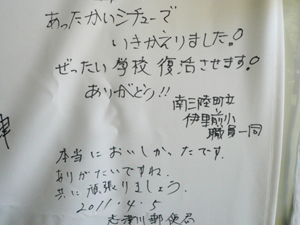 あったかいシチューで
いきかえりました!
ぜったい学校復活させます!
ありがとう!!
南三陸町立
伊里前小
職員一同
本当においしかったです。
ありがたいですね。
共に頑張りましょう。
2011.4.5
志津川郵便局